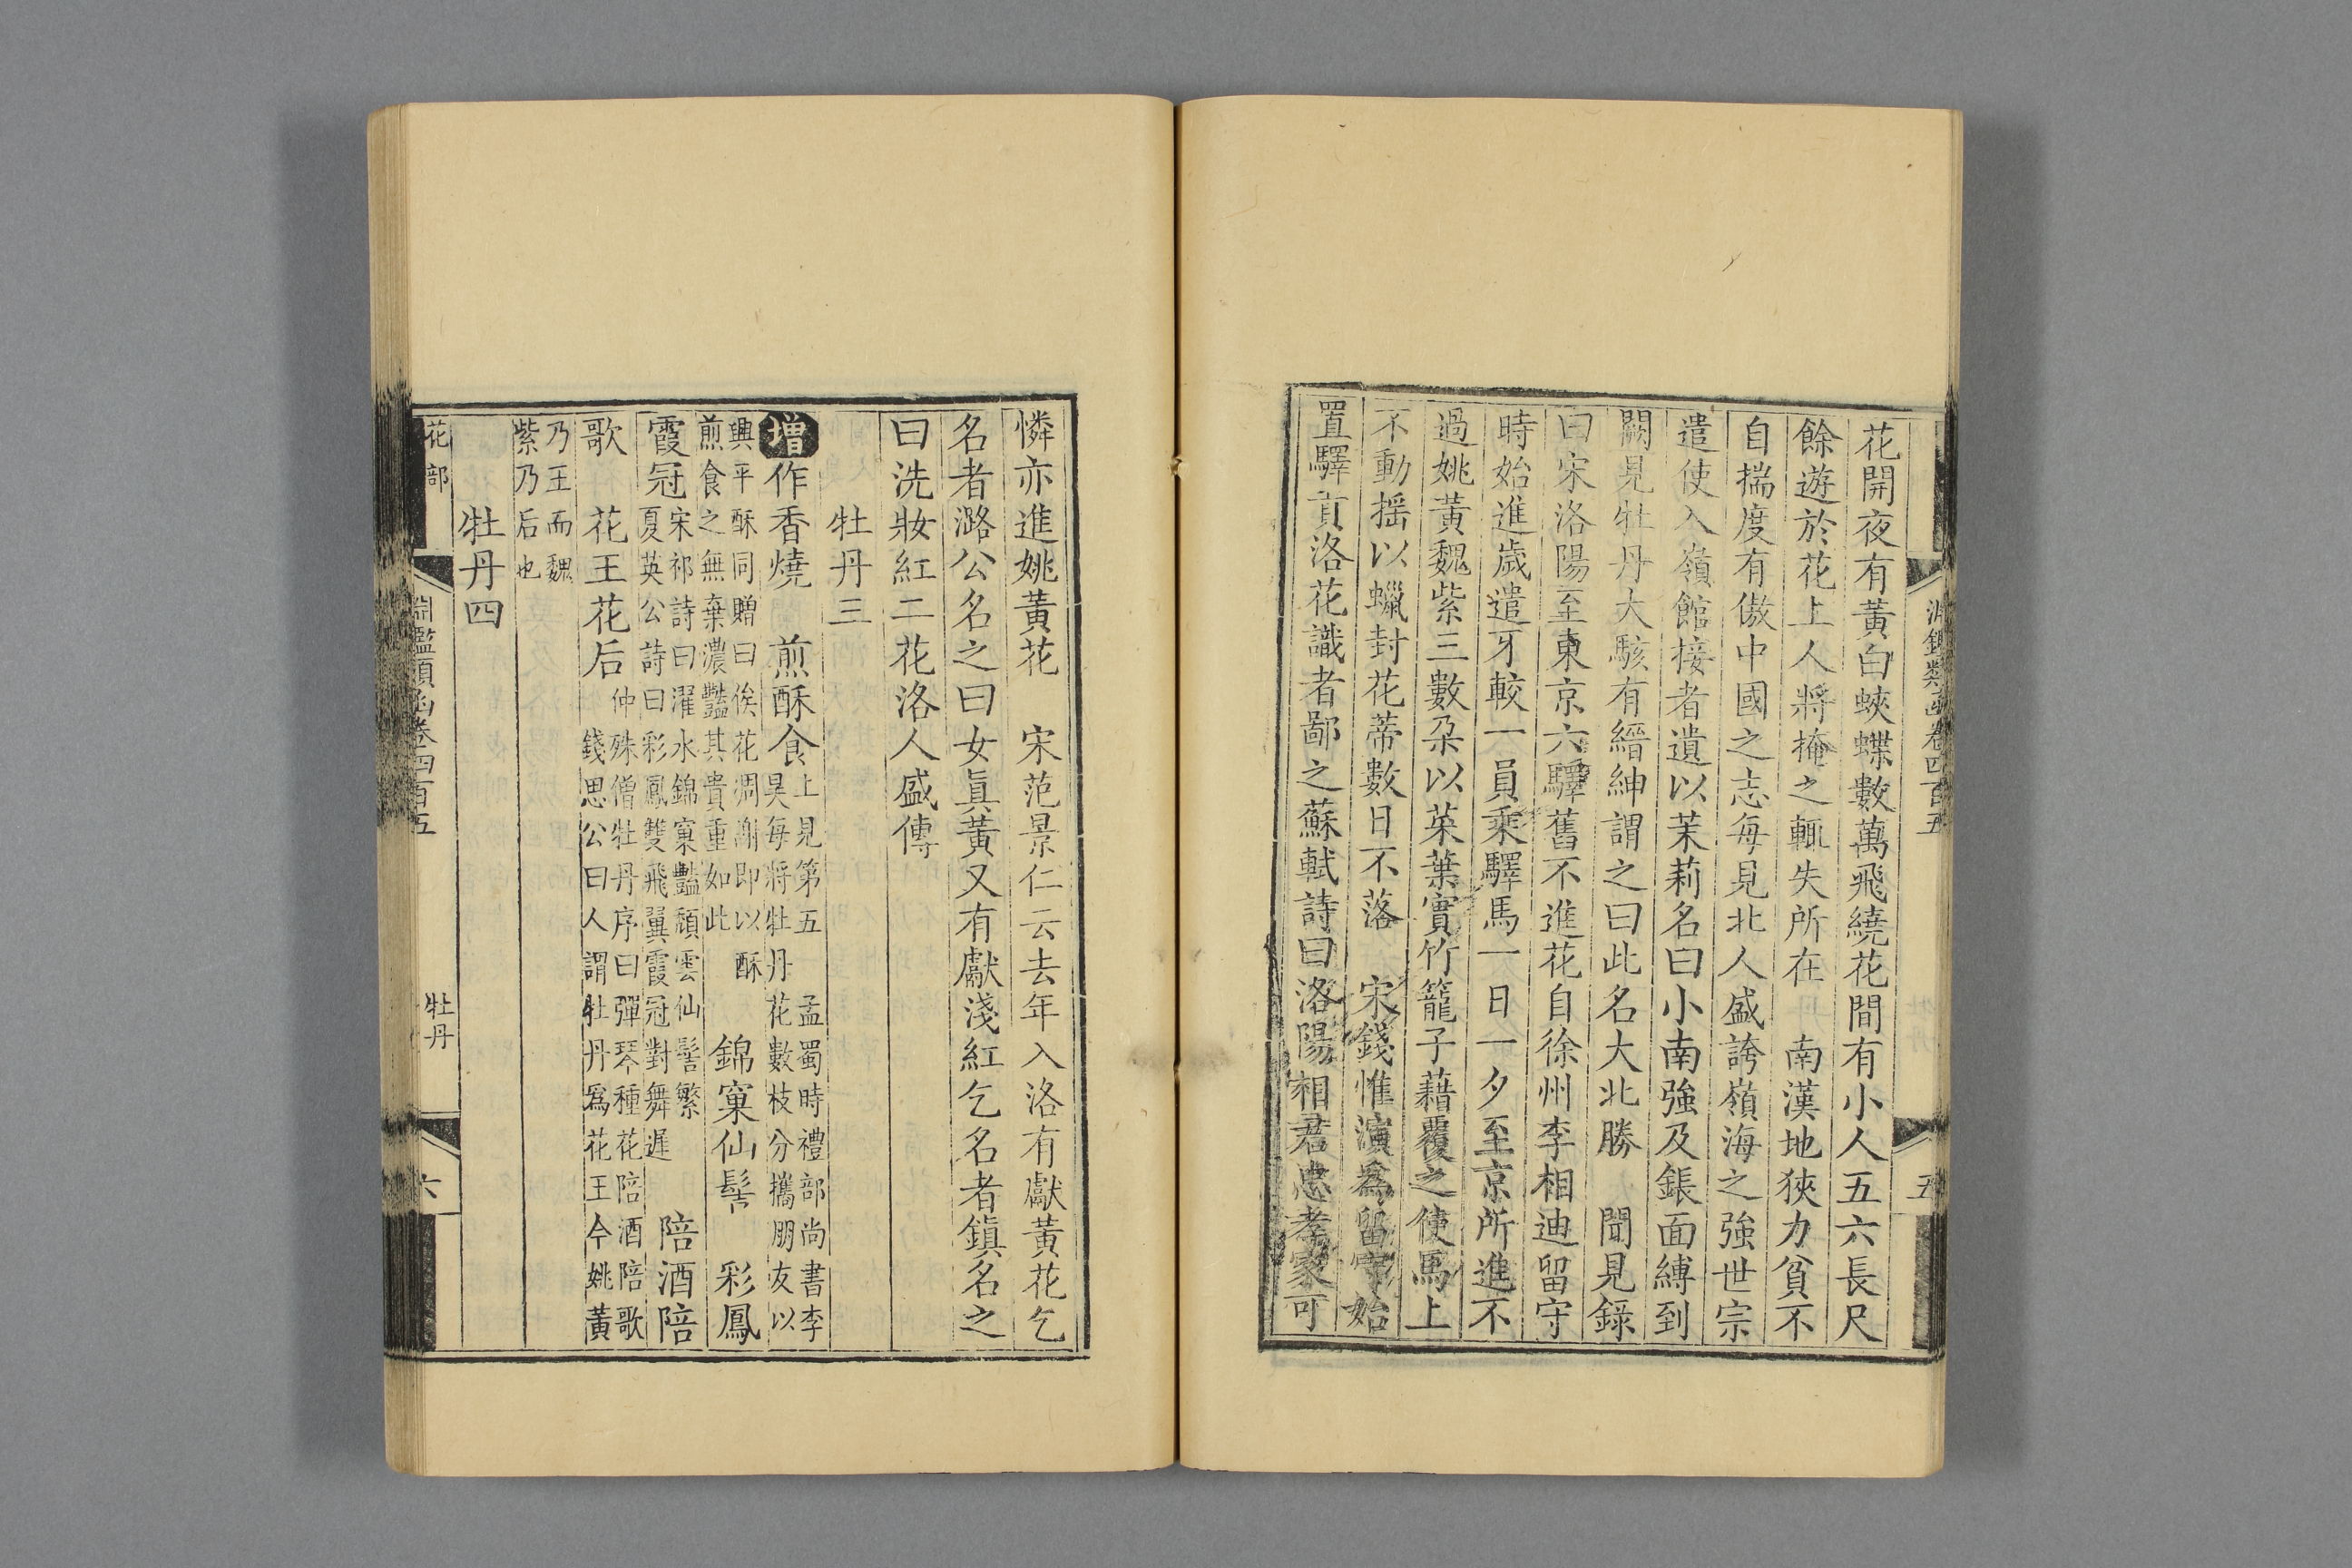 淵鑑類函卷四百五
五
花開夜有黃白蛺蝶數萬飛繞花間有小人五六長尺
餘遊於花上人將掩之輒失所在　南漢地狹力貧不
自揣度有傲中國之志每見北人盛誇嶺海之強世宗
遣使入嶺館接者遺以茉莉名曰小南強及鋹面縛到
闕見牡丹大駭有縉紳謂之曰此名大北勝　聞見錄
曰宋洛陽至東京六驛舊不進花自徐州李相迪留守
時始進歲遣牙較一員乘驛馬一日一夕至京所進不
過姚黃魏紫三數朶以菜葉實竹籠子藉覆之使馬上
不動搖以蠟封花蒂數日不落　宋錢惟演爲留守始
置驛貢洛花識者鄙之蘇軾詩曰洛陽相君忠孝家可
憐亦進姚黃花　宋范景仁云去年入洛有獻黃花乞
名者潞公名之曰女真黃又有獻淺紅乞名者鎮名之
曰洗妝紅二花洛人盛傳
牡丹三
增作香燒　煎酥食上見第五　孟蜀時禮部尚書李
昊每將牡丹花數枝分攜朋友以
興平酥同贈曰俟花凋謝即以酥
煎食之無棄濃豔其貴重如此
錦窠仙髻　彩鳳
霞冠宋祁詩曰濯水錦窠豔頹雲仙髻繁
夏英公詩曰彩鳳雙飛翼霞冠對舞遲
陪酒陪
歌　花王花后仲殊僧牡丹序曰彈琴種花陪酒陪歌
錢思公曰人謂牡丹爲花王今姚黃
乃王而魏
紫乃后也
牡丹四
花部
淵鑑類函卷四百五
牡丹
六